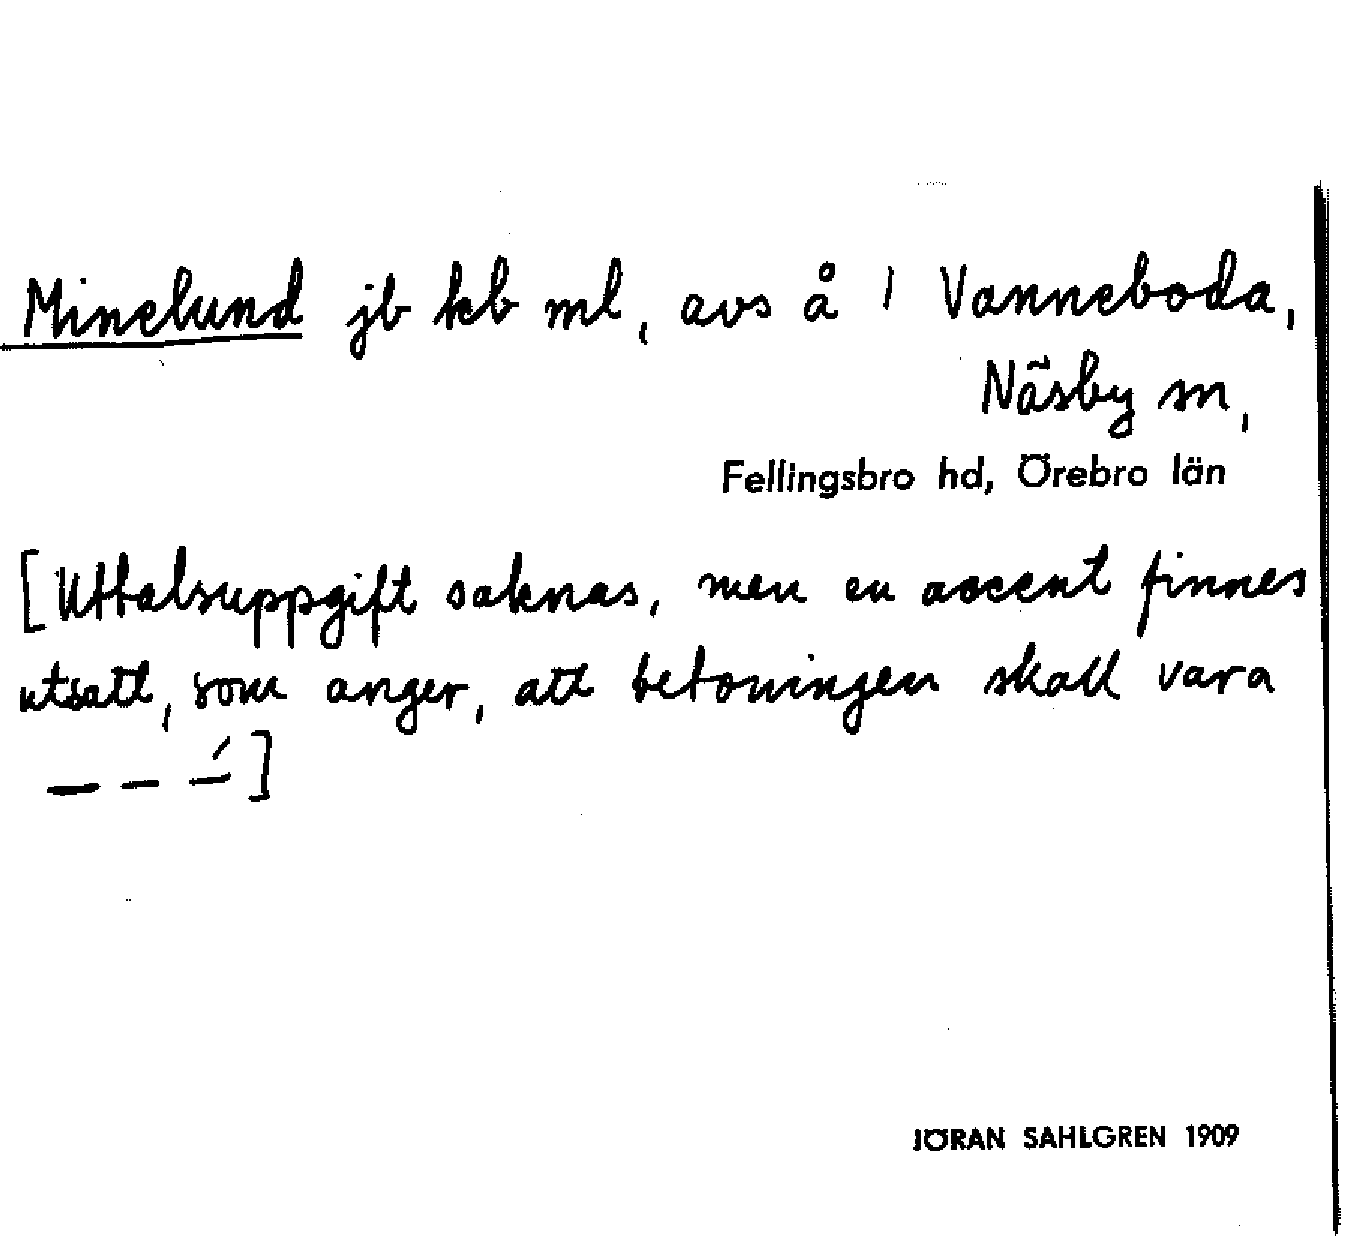 Minelund jb kb ml, avs å 1 Vanneboda,
Näsby sn,
Fellingsbro hd, Örebro län
[Uttalsuppgift saknas, men en accent finnes
utsatt, som anger, att betoningen skall vara
— — –́]
JÖRAN SAHLGREN 1909